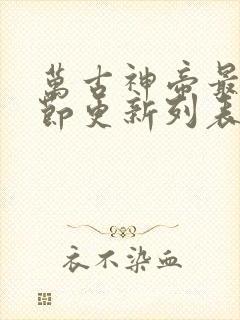 萬古神帝最
節更新列表
衣不染血